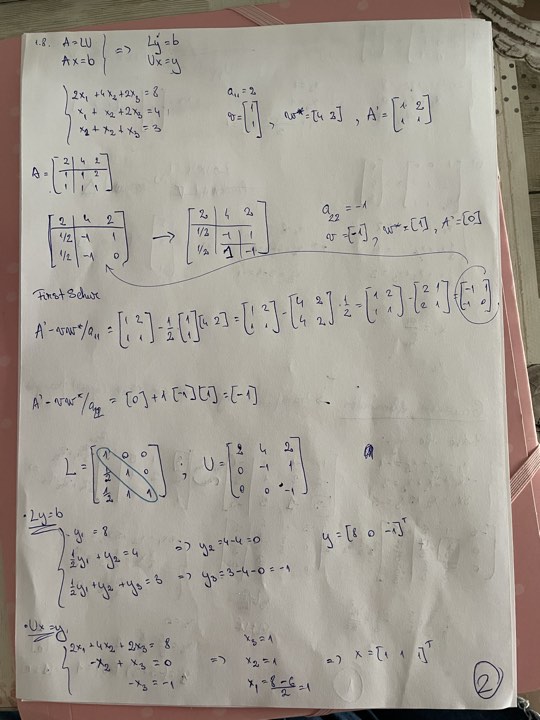 1.8. A=LU } => Ly=b
Ax=b } Ux=y
{ 2x₁+4x₂+2x₃=8
x₁ + x₂+2x₃=4
x₁+x₂+x₃=3
a₁₁=2
v=[1; 1], w*=[4 2], A'=[1 2; 1 1]
A=[2 4 2; 1 1 2; 1 1 1]
[2 4 2; 1/2 -1 1; 1/2 -1 0] → [2 4 2; 1/2 -1 1; 1/2 1 -1]
a₂₂=-1
v=[-1], w*=[1], A'=[0]
First Schur
A'-vw*/a₁₁ = [1 2; 1 1] - 1/2 [1; 1][4 2] = [1 2; 1 1] - [4 2; 4 2]·1/2 = [1 2; 1 1] - [2 1; 2 1] = [-1 1; -1 0]
A'-vw*/a₂₂ = [0]+1[-1][1]=[-1]
L=[1 0 0; 1/2 1 0; 1/2 1 1] ; U=[2 4 2; 0 -1 1; 0 0 -1]
• Ly=b
{ y₁ = 8
1/2y₁+y₂=4 => y₂=4-4=0
1/2y₁+y₂+y₃=3 => y₃=3-4-0=-1
y=[8 0 -1]ᵀ
• Ux=y
{ 2x₁+4x₂+2x₃=8
-x₂+x₃=0
-x₃=-1
=> x₃=1
x₂=1
x₁=(8-6)/2=1
=> x=[1 1 1]ᵀ
2